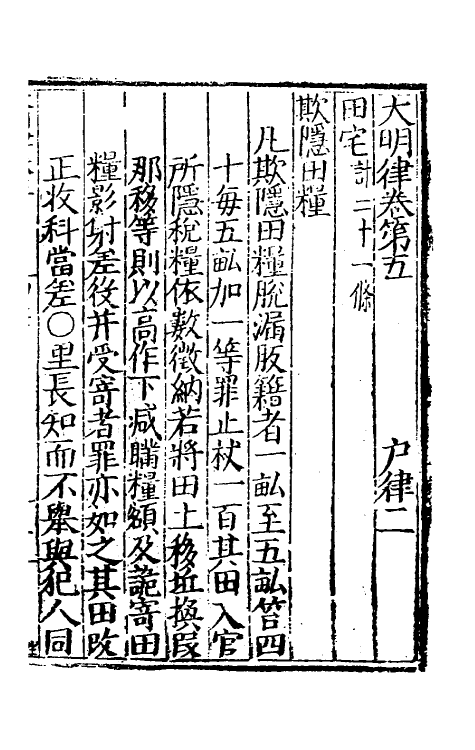 大明律卷第五 户律二
田宅計二十一條
欺隱田糧
凡欺隱田糧脫漏版籍者一畝至五畝笞四
十每五畝加一等罪止杖一百其田入官
所隱稅糧依數徵納若將田土移坵換段
那移等則以高作下减瞞糧額及詭寄田
糧影射差役并受寄者罪亦如之其田改
正收科當差〇里長知而不舉與犯人同